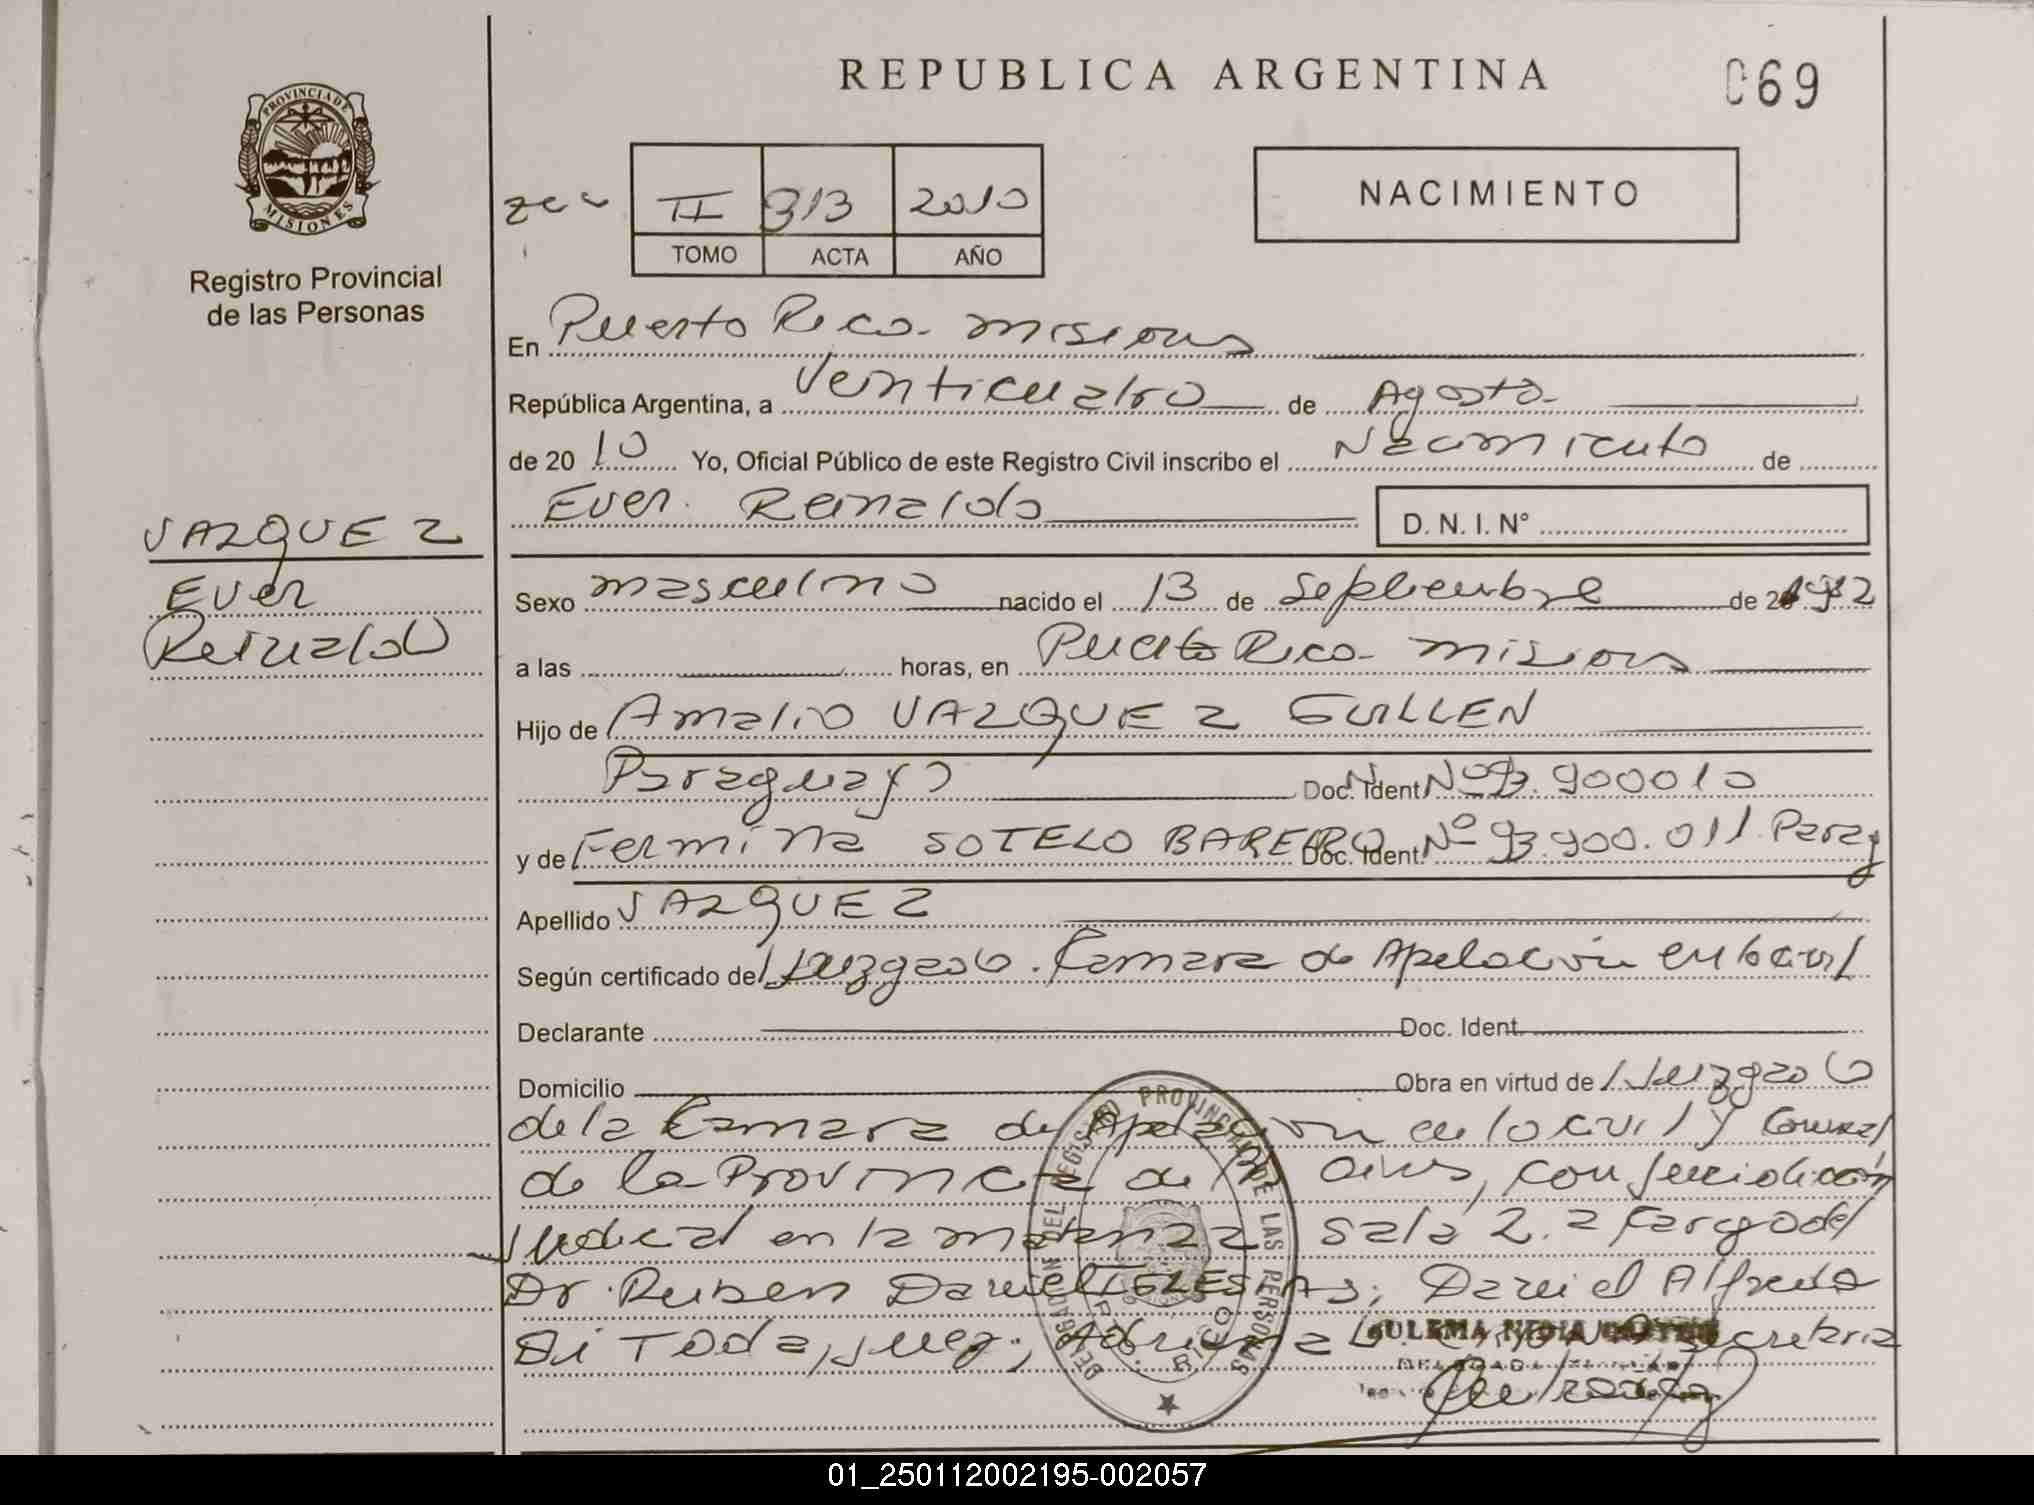 REPUBLICA ARGENTINA
069
PROVINCIA DE
MISIONES
Registro Provincial
de las Personas
II 313 2010
TOMO ACTA AÑO
NACIMIENTO
En Puerto Rico - Misiones
República Argentina, a Veinticuatro de Agosto
de 20 10 Yo, Oficial Público de este Registro Civil inscribo el Nacimiento de
Ever Reinaldo
D. N. I. N°
VAZQUEZ
Ever
Reinaldo
Sexo masculino nacido el 13 de Septiembre de
a las horas, en Puerto Rico - Misiones
Hijo de Amalio VAZQUEZ GUILLEN
Paraguayo Doc. Ident Nº 93.900010
y de Fermina SOTELO BAREIRO Doc. Ident Nº 93.900.011 Parag
Apellido VAZQUEZ
Según certificado de Juzgado. Camara de Apelación en lo civil
Declarante Doc. Ident.
Domicilio Obra en virtud de Juzgado
de la Camara de Apelación en lo civil y
de la Provincia de Aires, con
Judicial en la matanza Sala 2. a cargo del
Dr. Ruben Daniel Daniel Alfredo
Di Toda, juez; Adriana secretaria
DELEGACION DEL REGISTRO PROVINCIAL DE LAS PERSONAS
PTO. RICO
01_250112002195-002057